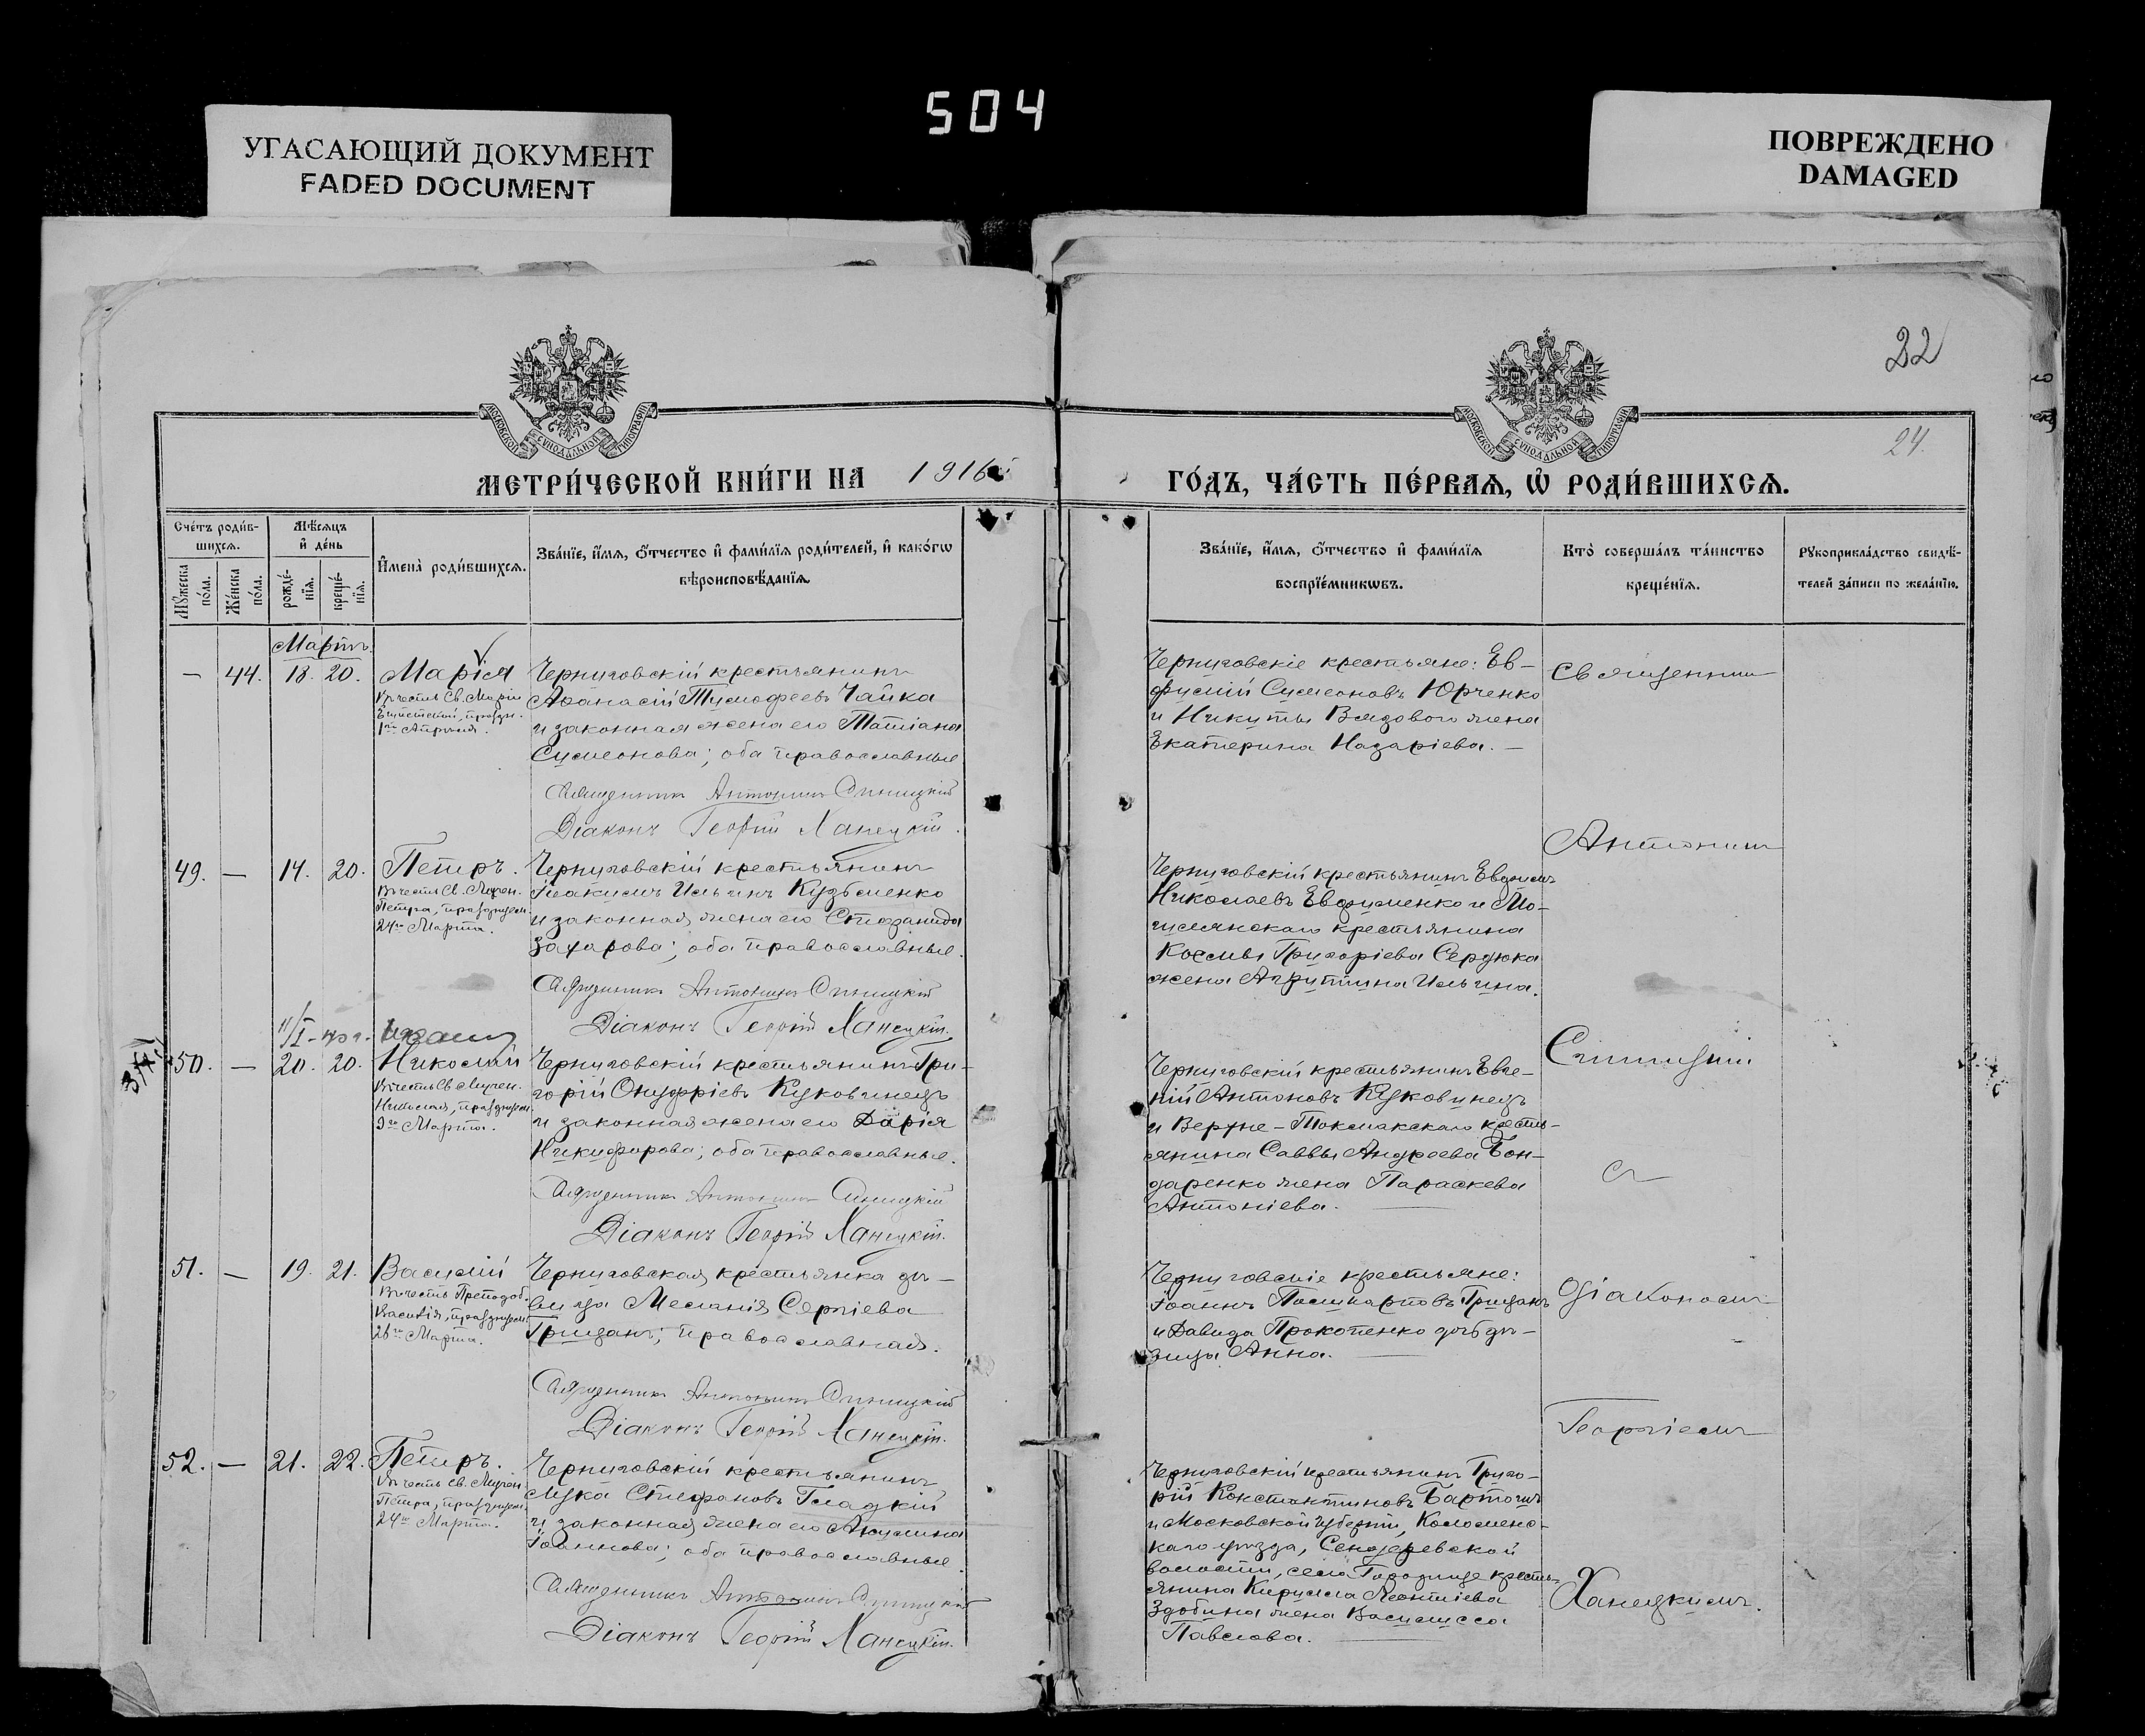 504
УГАСАЮЩИЙ ДОКУМЕНТ
FADED DOCUMENT
ПОВРЕЖДЕНО
DAMAGED
22
24.
МОСКОВСКОЙ СУНОДАЛЬНОЙ ТИПОГРАФІИ
МОСКОВСКОЙ СУНОДАЛЬНОЙ ТИПОГРАФІИ
МЕТРИ́ЧЕСКОЙ КНИ́ГИ НА 1916
ГО́ДЪ, ЧА́СТЬ ПЕ́РВАѦ, Ѡ҆ РОДИ́ВШИХСѦ.
Сче́тъ роди́в-
шихсѧ.
Мꙋ́жеска по́ла.
Же́нска по́ла.
Мѣ́сѧцъ
и҆ де́нь
рожде́-
нїѧ.
креще́-
нїѧ.
И҆мена̀ роди́вшихсѧ.
Зва́нїе, и҆́мѧ, ѻ҆́тчество и҆ фами́лїѧ роди́телей, и҆ како́гѡ
вѣроисповѣ́данїѧ.
Зва́нїе, и҆́мѧ, ѻ҆́тчество и҆ фами́лїѧ
воспрїе́мникѡвъ.
Кто̀ соверша́лъ та́инство
креще́нїѧ.
Рꙋкоприкла́дство свидѣ́-
телей за́писи по жела́нїю.
Мартъ.
— 44. 18. 20. Марія
Въ честь Св. Маріи
Египетской, праздн.
1го Апрѣля.
Черниговскій крестьянинъ
Аѳанасій Тимофеевъ Чайка
и законная жена его Татіана
Симеонова; оба православные
Священникъ Антонинъ Синицкій
Діаконъ Георгій Ханецкій.
Черниговскіе крестьяне: Ев-
фимій Симеоновъ Юрченко
и Никиты Вядового жена
Екатерина Назаріева. —
Священник
Антонин
49. — 14. 20. Петръ.
Въ честь Св. Мучен.
Петра, празднуем.
24го Марта.
Черниговскій крестьянинъ
Іоакимъ Ильинъ Кузьменко
и законная жена его Стефанида
Захарова; оба православные.
Священникъ Антонинъ Синицкій
Діаконъ Георгій Ханецкій.
Черниговскій крестьянинъ Евфимъ
Николаевъ Евфименко и Мо-
гилянскаго крестьянина
Космы Григоріева Сердюка
жена Агрипина Ильина.
Синицкій
50. — 20. 20. Николай
Въ честь Св. Мучен.
Николая, празднуем.
9го Марта.
Черниговскій крестьянинъ Гри-
горій Онуфріевъ Куковинецъ
и законная жена его Дарія
Никифорова; оба православные.
Священникъ Антонинъ Синицкій
Діаконъ Георгій Ханецкій.
Черниговскій крестьянинъ Евге-
ній Антоновъ Куковинецъ
и Верхне-Токмакскаго кресть-
янина Саввы Андреева Бон-
даренко жена Параскева
Антоніева.
с
51. — 19. 21. Василій
Въ честь Преподоб.
Василія, празднуем.
26го Марта.
Черниговская крестьянка дѣ-
вица Меланія Сергіева
Грицанъ; православная.
Священникъ Антонинъ Синицкій
Діаконъ Георгій Ханецкій.
Черниговскіе крестьяне:
Іоаннъ Поликарповъ Грицанъ
и Давида Прокопенко дочь дѣ-
вица Анна.
діакономъ
Георгіемъ
52. — 21. 22. Петръ.
Въ честь Св. Мучен.
Петра, празднуем.
24го Марта.
Черниговскій крестьянинъ
Лука Стефановъ Гладкій
и законная жена его Акилина
Іоаннова; оба православные.
Священникъ Антонинъ Синицкій
Діаконъ Георгій Ханецкій.
Черниговскій крестьянинъ Григо-
рій Константиновъ
и Московской губерніи, Коломенс-
каго уѣзда,
волости, села Городище кресть-
янина Кирилла Леонтіева
Здобина жена Василисса
Павлова.
Ханецкимъ.